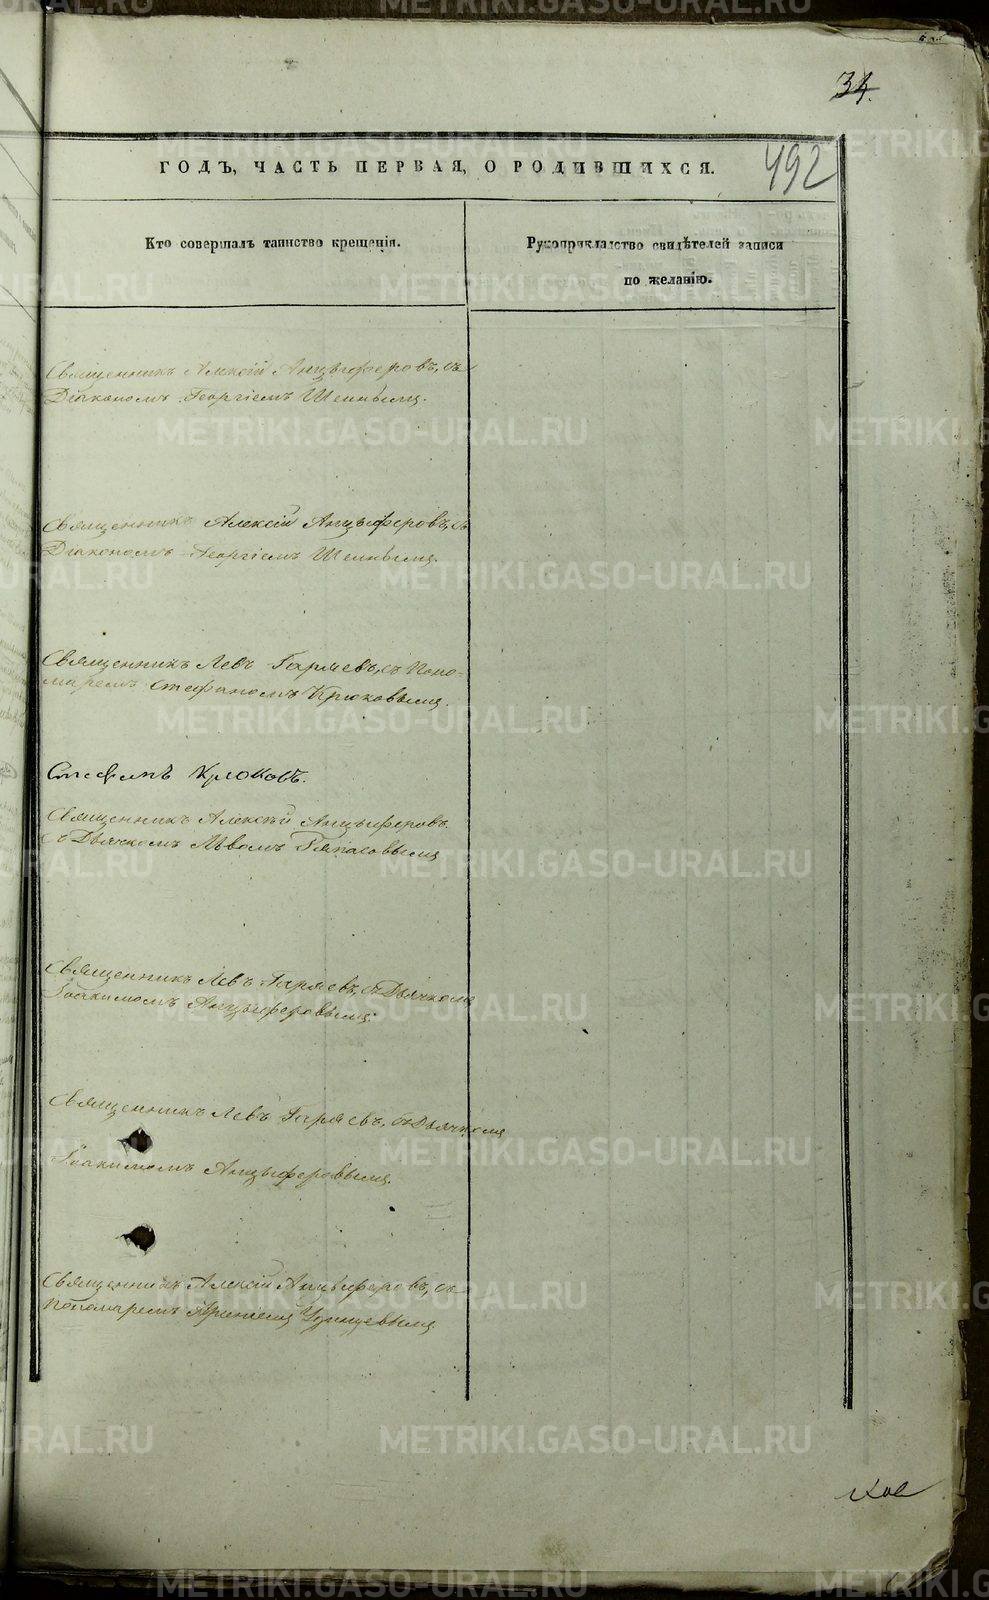 34.
492
ГОДЪ, ЧАСТЬ ПЕРВАЯ, О РОДИВШИХСЯ.
Кто совершалъ таинство крещенія.
Рукоприкладство свидѣтелей записи
по желанію.
Священникъ Алексій Анцыферовъ, съ
Діакономъ Георгіемъ
Священникъ Алексій Анцыферовъ, съ
Діакономъ Георгіемъ
Священникъ Левъ Гаряевъ, съ Поно-
маремъ Стефаномъ Крюковымъ.
Стефанъ Крюковъ.
Священникъ Алексѣй Анцыферовъ
съ Дьячкомъ Львомъ
Священникъ Левъ Гаряевъ, съ Дьячкомъ
Іоакимомъ Анцыферовымъ.
Священникъ Левъ Гаряевъ, съ Дьячкомъ
Іоакимомъ Анцыферовымъ.
Священникъ Алексій Анцыферовъ, съ
Пономаремъ
METRIKI.GASO-URAL.RU